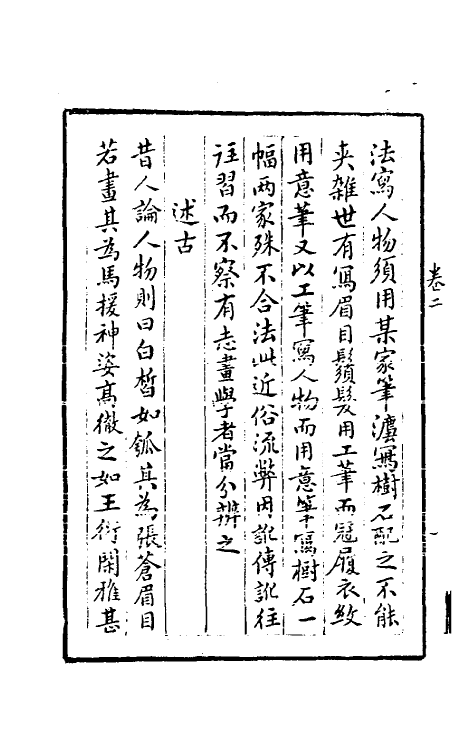 卷二
法寫人物須用某家筆法寫樹石配之不能
夾雜世有寫眉目鬚髮用工筆而冠履衣紋
用意筆又以工筆寫人物而用意筆寫樹石一
幅两家殊不合法此近俗流弊因訛傳訛往
往習而不察有志畫學者當分辨之
述古
昔人論人物則曰白皙如瓠其為張蒼眉目
若畫其為馬援神姿高徹之如王衍閑雅甚